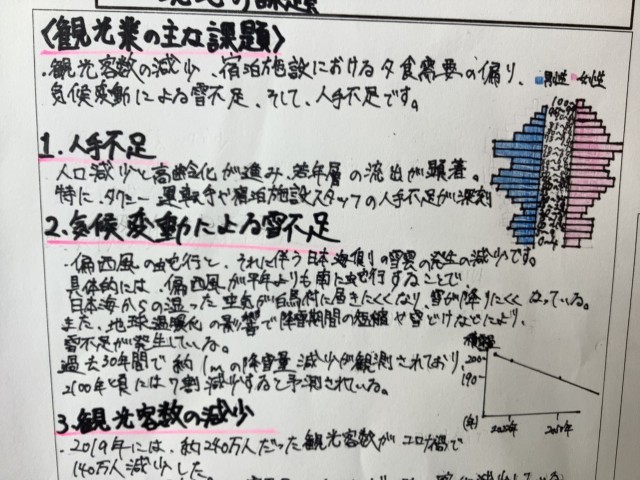 の課題
〈観光業の主な課題〉
・観光客数の減少、宿泊施設における夕食需要の偏り、
気候変動による雪不足、そして、人手不足です。
男性 女性
1.人手不足
人口減少と高齢化が進み、若年層の流出が顕著。
特に、タクシー運転手や宿泊施設スタッフの人手不足が深刻
2.気候変動による雪不足
・偏西風の蛇行と、それに伴う日本海側の雪雲の発生の減少です。
具体的には、偏西風が平年よりも南に蛇行することで
日本海からの湿った空気が白馬村に届きにくくなり、雪が降りにくくなっている。
また、地球温暖化の影響で降雪期間の短縮や雪どけなどにより、
雪不足が発生している。
過去30年間で約1mの降雪量減少が観測されており、
2100年頃には7割減少すると予測されている。
200
190
(年)
3.観光客数の減少
・2019年には、約240万人だった観光客数がコロナ禍で
140万人減少した。